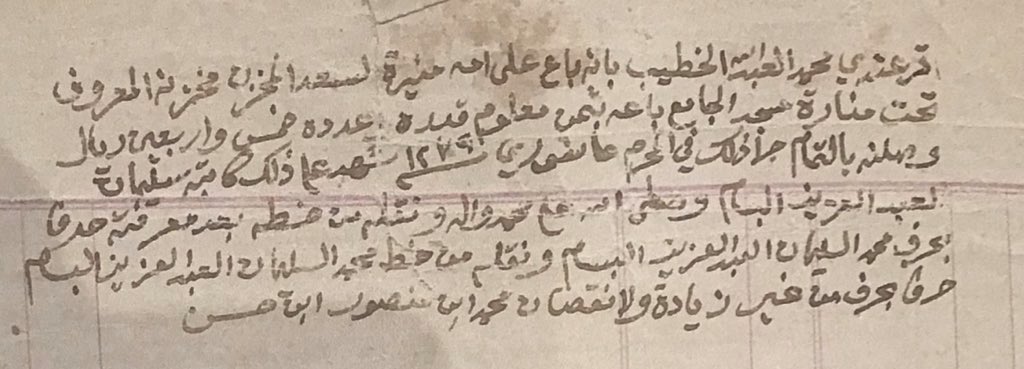 اقر عندي محمد العبدالله الخطيب بانه باع على امه منيرة لسعد المخزن مخزنه المعروف
تحت منارة مسجد الجامع باعه بثمن معلوم قدره وعدده خمس واربعين ريال
وصلنه بالتمام جرا ذلك في المحرم عاشوري سنة ١٢٧٩ شهد على ذلك كاتبه سليمان
العبدالعزيز البسام وصلى الله على محمد واله ونقله من خطه بعد معرفته حرفا
بحرف محمد السليمان العبدالعزيز البسام ونقله من خط محمد السليمان العبدالعزيز البسام
حرفا بحرف من غير زيادة ولا نقصان محمد ابن منصور ابن حسن